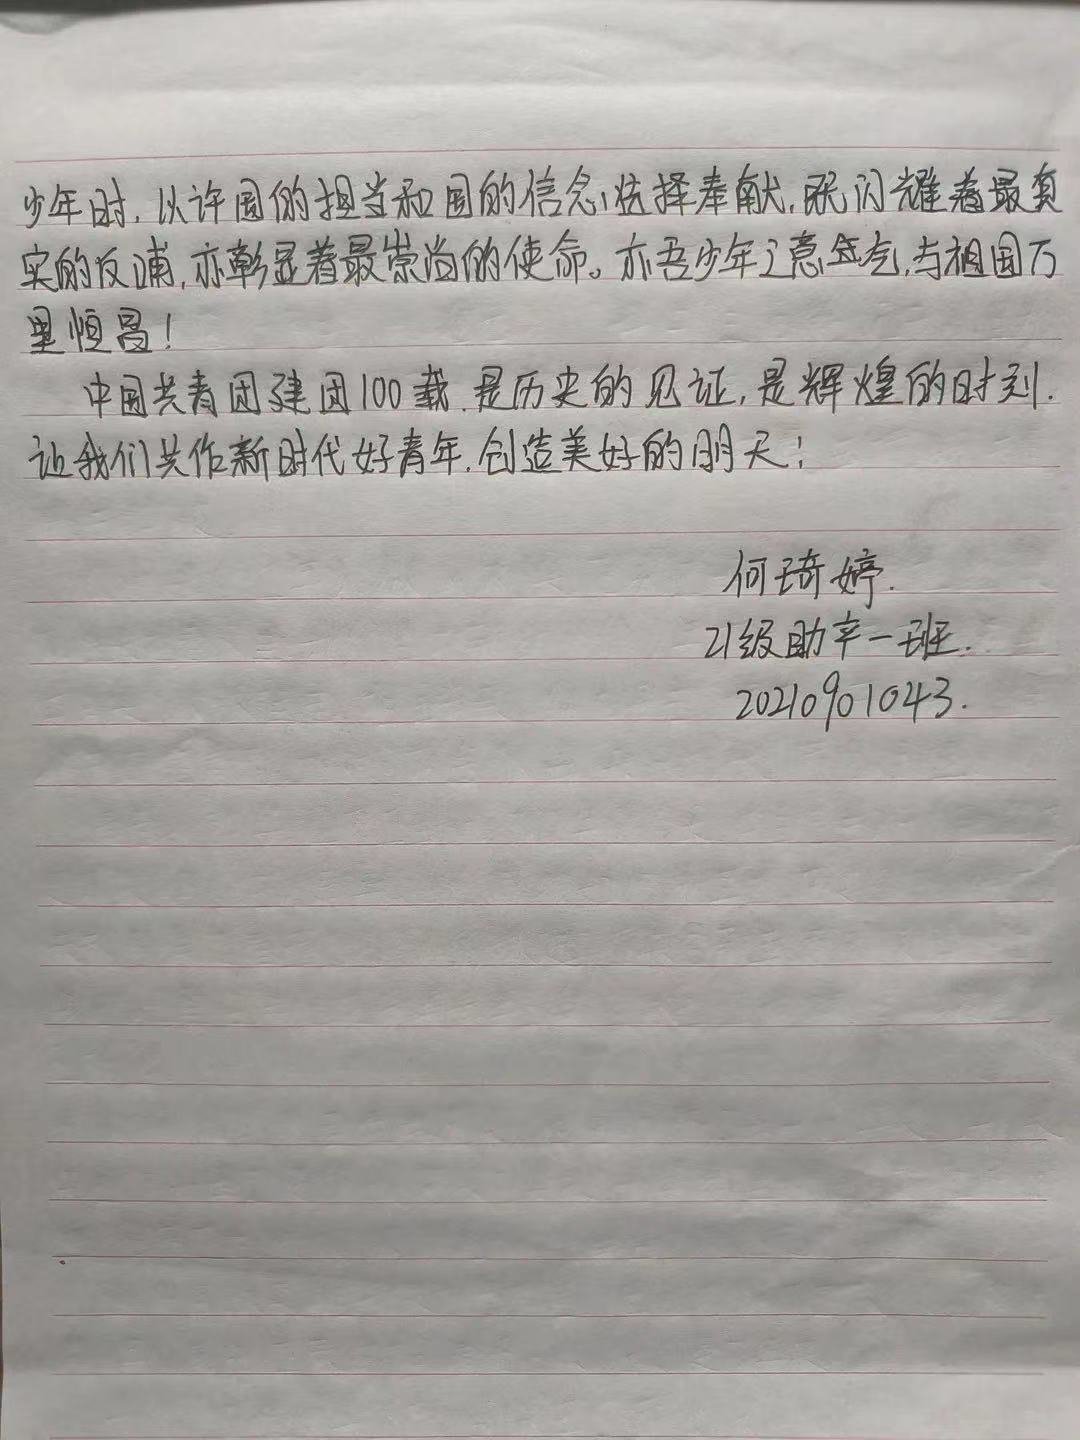 少年时,以许国的担当和国的信念,选择奉献,既闪耀着最真
实的反哺,亦彰显着最崇尚的使命。亦吾少年之意气,与祖国万
里恒昌!
中国共青团建团100载,是历史的见证,是辉煌的时刻.
让我们共作新时代好青年,创造美好的明天!
何琦婷.
21级助产一班.
20210901043.